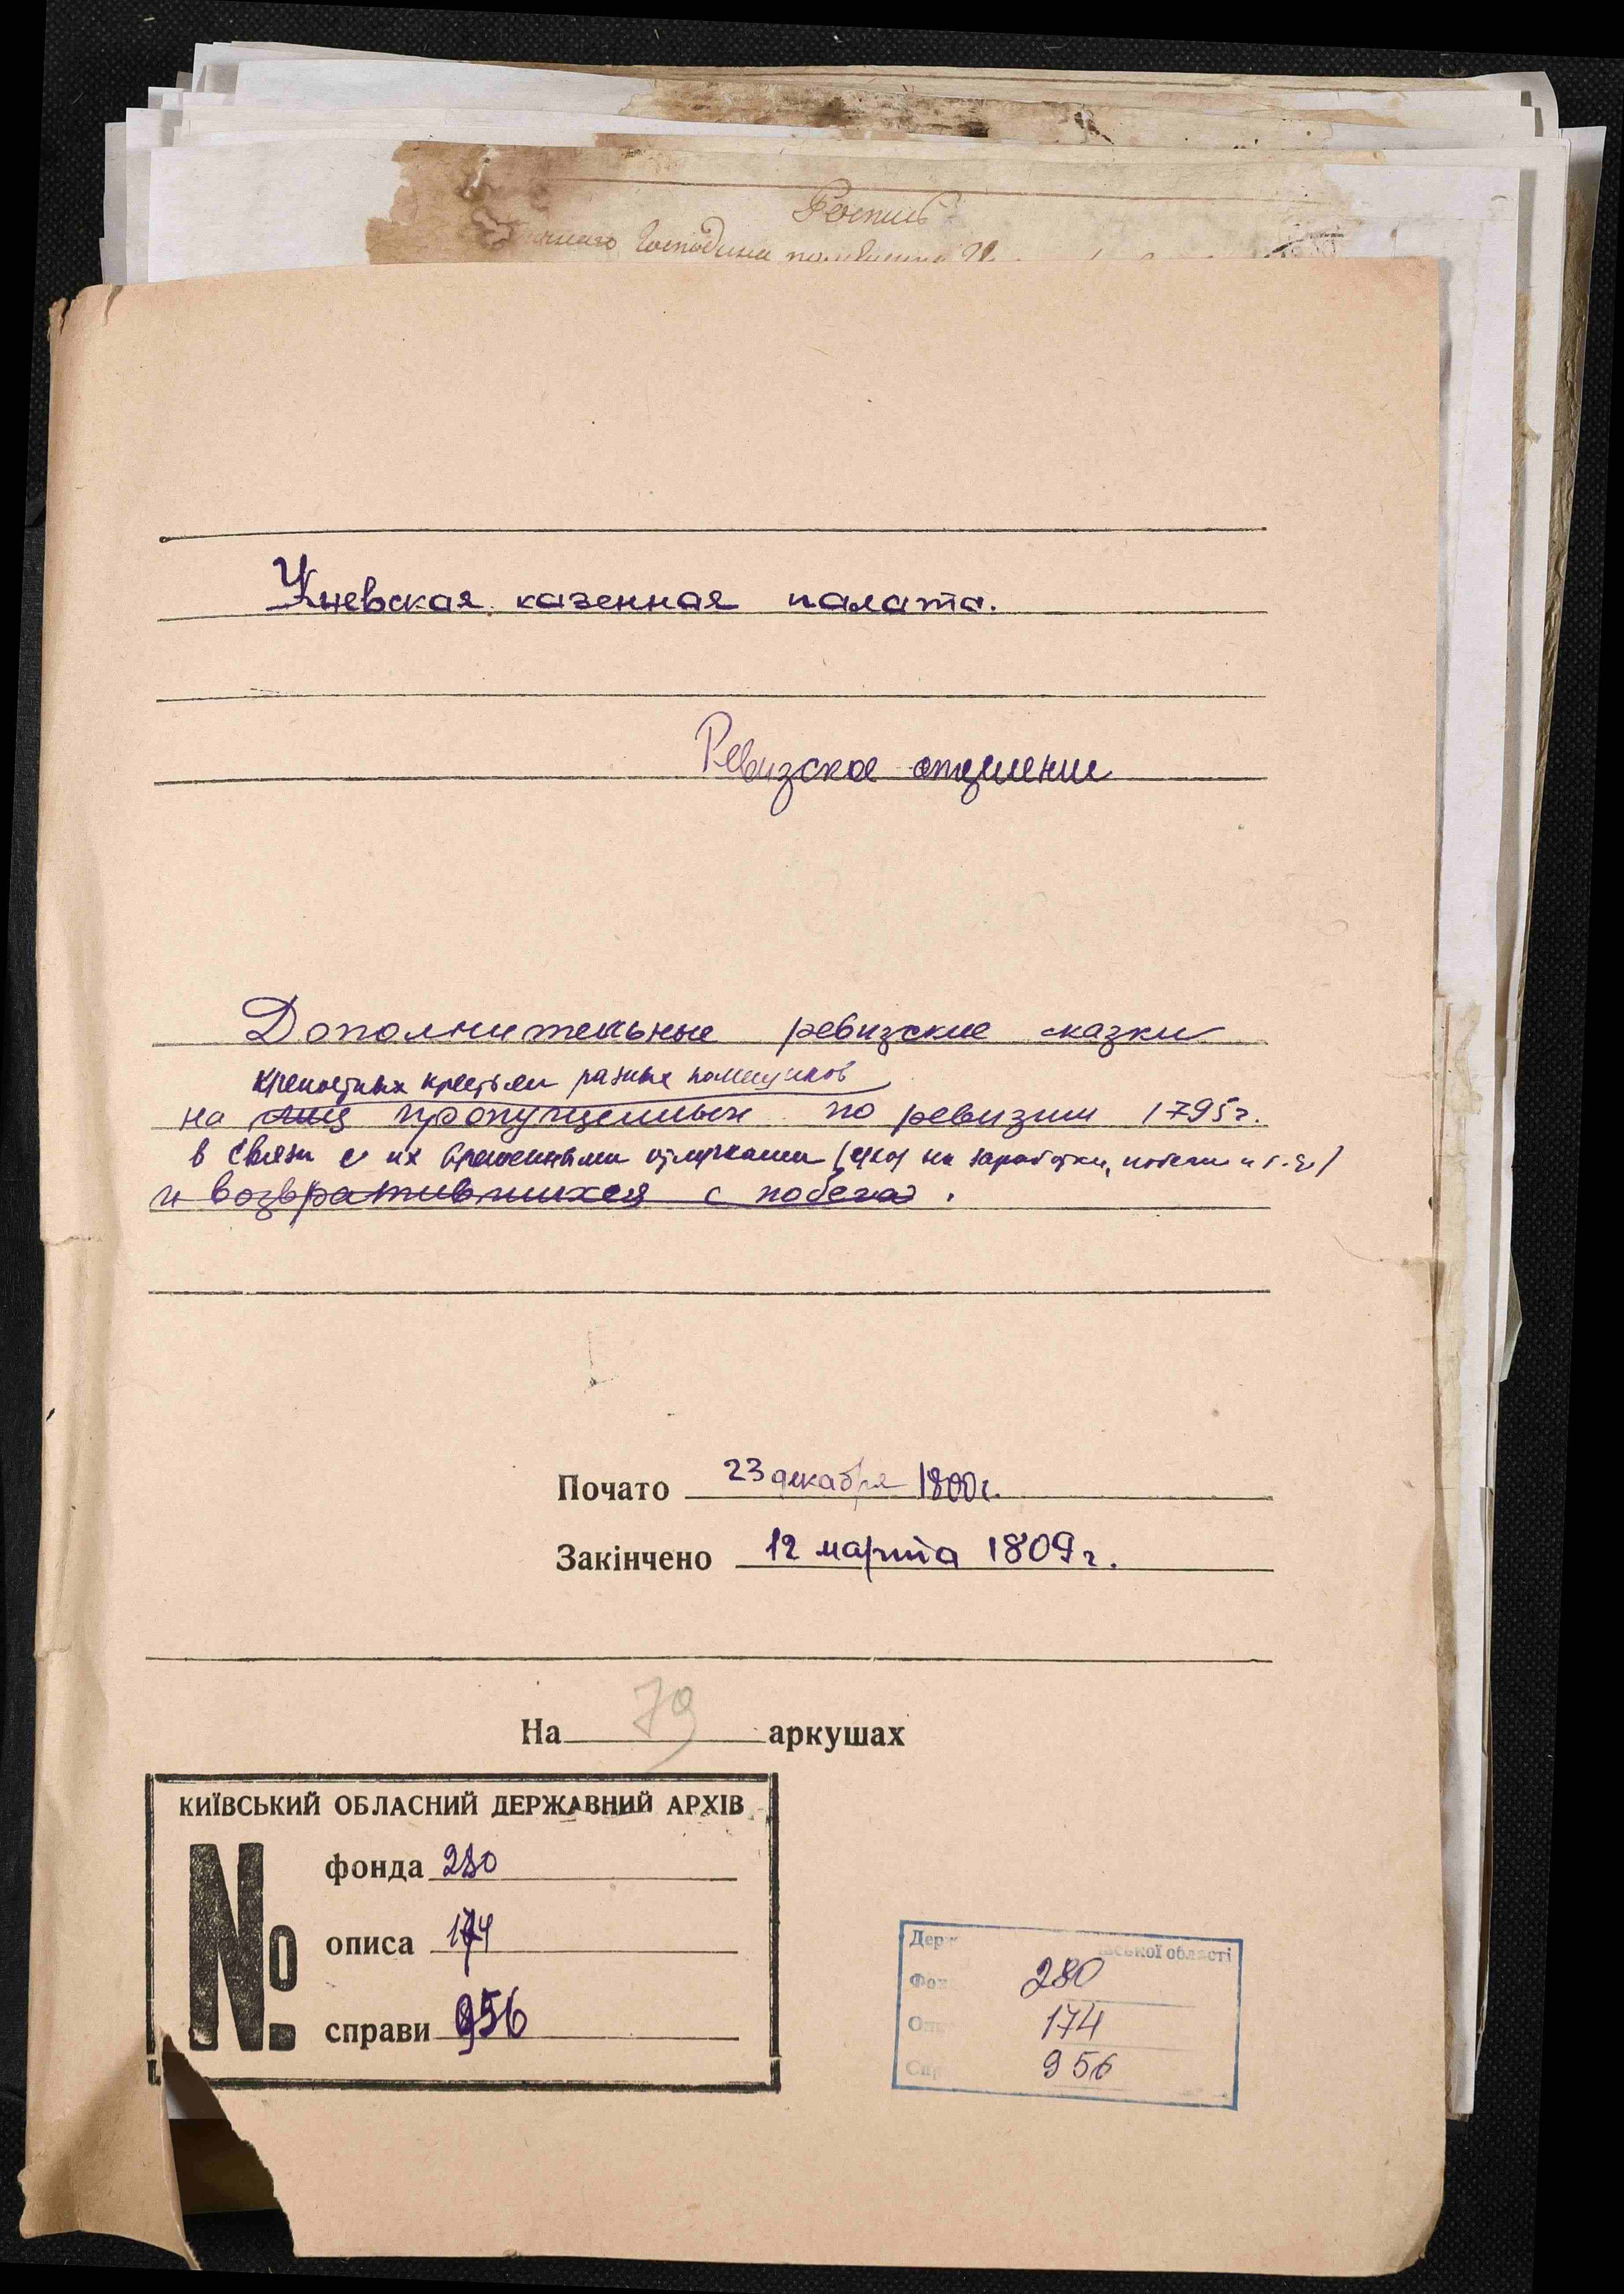 Роспись
Господина
Киевская казенная палата.
Ревизское отделение
Дополнительные ревизские сказки
крепостных крестьян разных помещиков
на лиц пропущенных по ревизии 1795 г.
в связи с их временными отлучками (уход на заработки, побеги и т.д.)
и возвратившихся с побега.
Почато 23 декабря 1800 г.
Закінчено 12 марта 1809 г.
На 79 аркушах
КИЇВСЬКИЙ ОБЛАСНИЙ ДЕРЖАВНИЙ АРХІВ
№
фонда 280
описа 174
справи 956
Держ ївської області
Фон 280
Опи 174
Спр 956